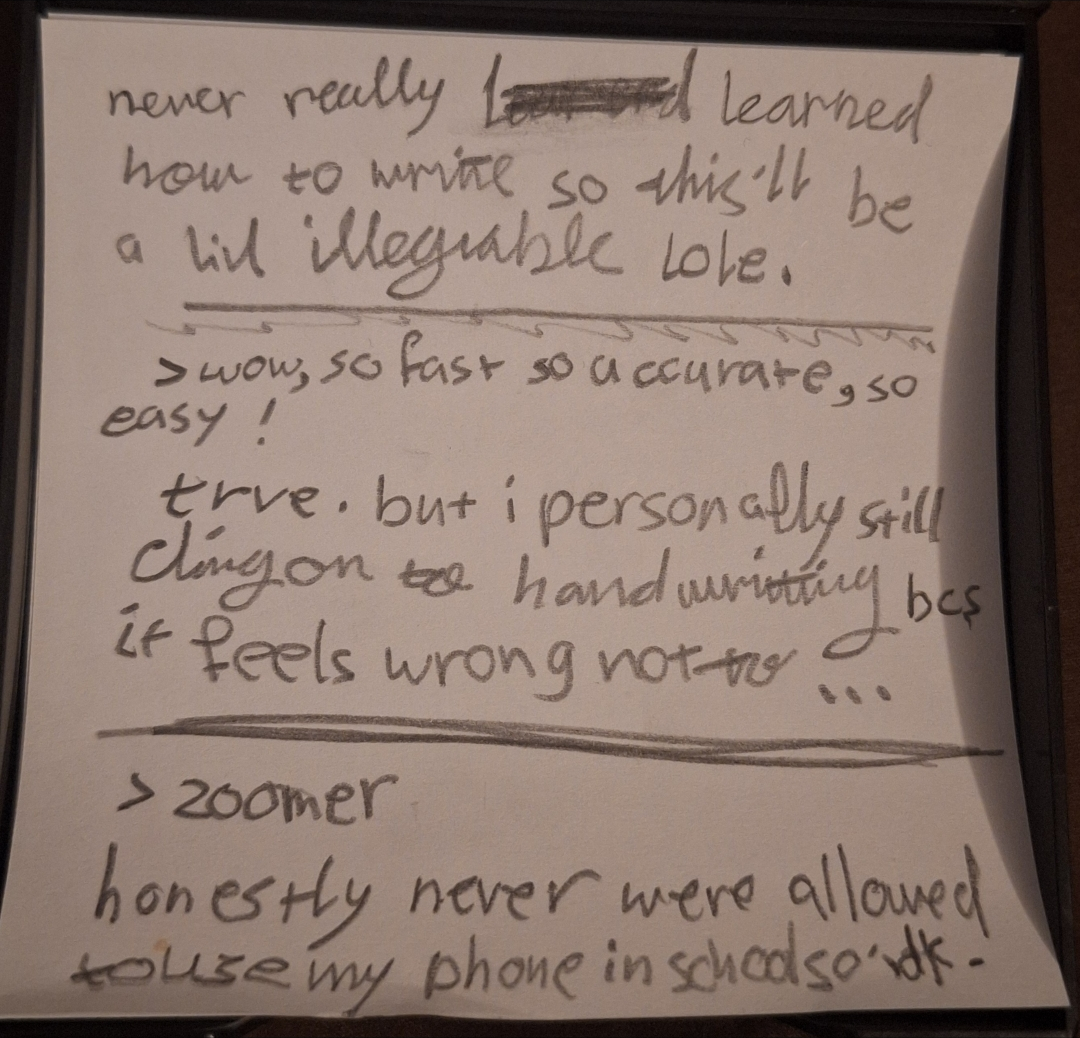 never really learned
how to write so this'll be
a lil illegiable lole.
>wow, so fast so accurate, so
easy!
trve. but i personally still
cling on to handwriting bcs
it feels wrong not to ...
> zoomer
honestly never were allowed
to use my phone in school so idk.